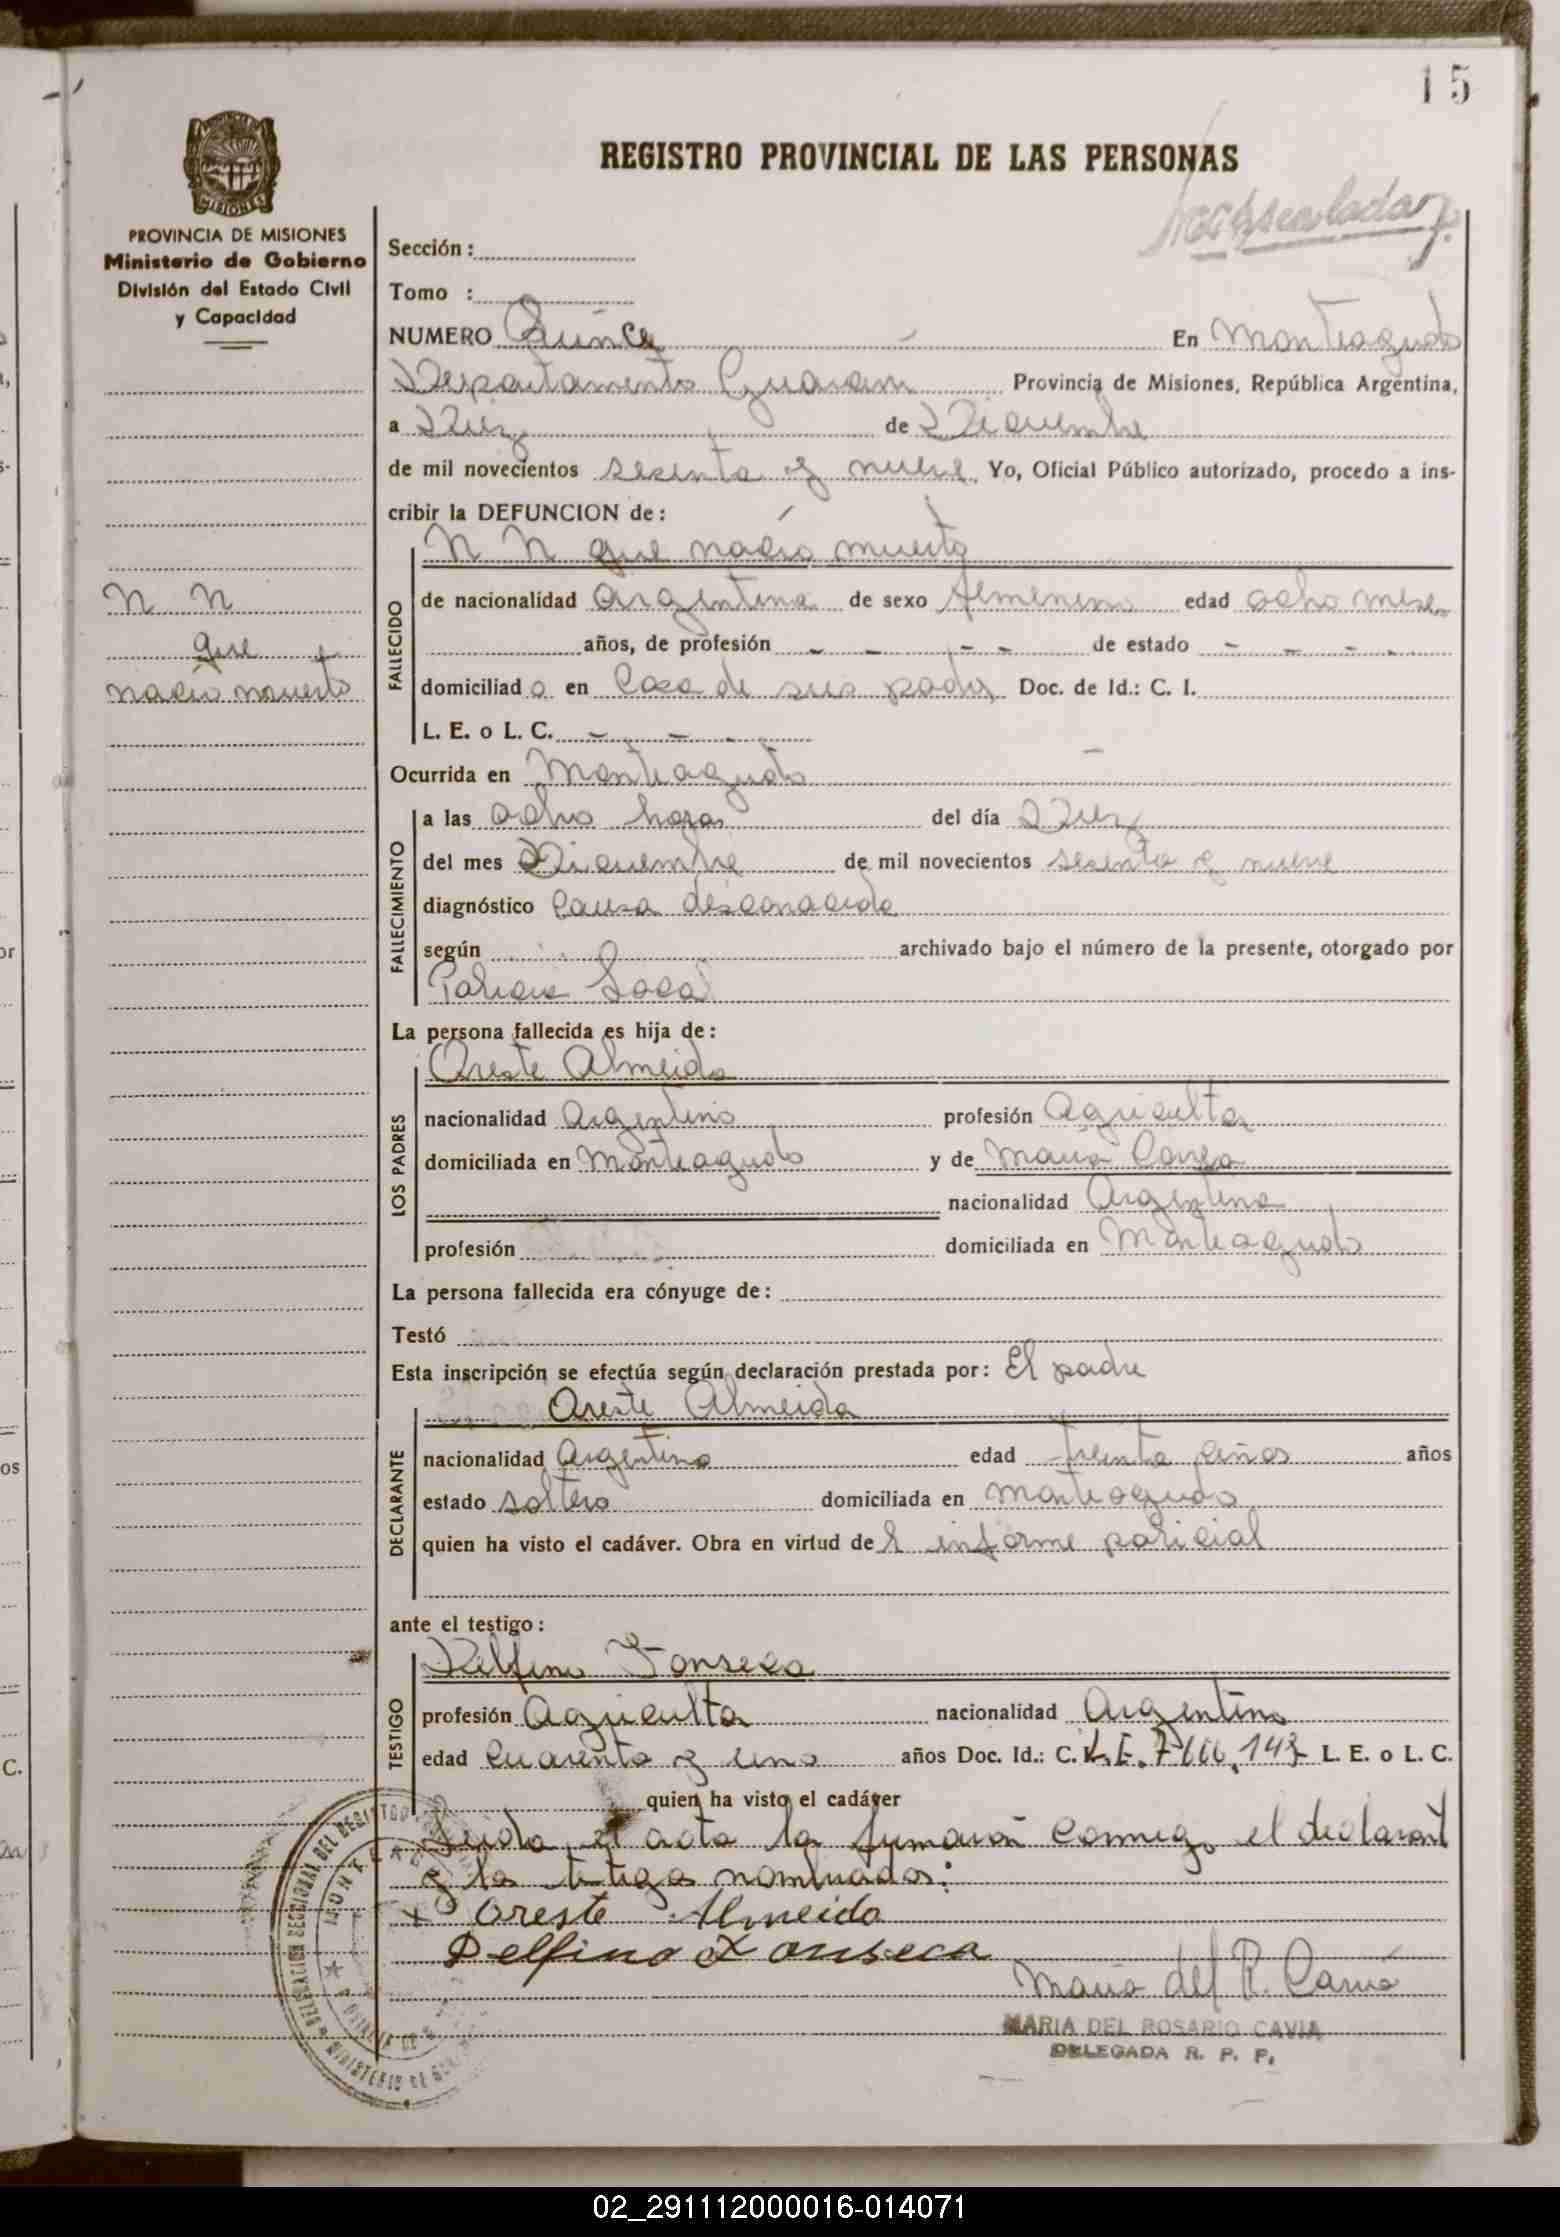 15
REGISTRO PROVINCIAL DE LAS PERSONAS
PROVINCIA DE MISIONES
Ministerio de Gobierno
División del Estado Civil
y Capacidad
Sección :
Tomo :
NUMERO Quince En Monteagudo
Departamento Guarani Provincia de Misiones, República Argentina,
a Diez de Diciembre
de mil novecientos sesenta y nueve Yo, Oficial Público autorizado, procedo a ins-
cribir la DEFUNCION de :
N N que nació muerto
N N
que
nació muerto
FALLECIDO
de nacionalidad argentina de sexo femenino edad ocho mese
años, de profesión - - - - de estado - - - -
domiciliad a en Casa de sus padres Doc. de Id.: C. I.
L. E. o L. C. - - -
Ocurrida en Monteagudo
FALLECIMIENTO
a las ocho horas del día Diez
del mes Diciembre de mil novecientos sesenta y nueve
diagnóstico Causa desconocida
según archivado bajo el número de la presente, otorgado por
Policia Local
La persona fallecida es hija de :
LOS PADRES
Oreste Almeida
nacionalidad Argentino profesión Agriculto
domiciliada en Monteagudo y de Maria
nacionalidad Argentina
profesión domiciliada en Monteagudo
La persona fallecida era cónyuge de :
Testó
Esta inscripción se efectúa según declaración prestada por : El padre
DECLARANTE
Oreste Almeida
nacionalidad Argentino edad treinta años años
estado soltero domiciliada en Monteagudo
quien ha visto el cadáver. Obra en virtud de l informe policial
ante el testigo :
TESTIGO
Delfino Fonseca
profesión Agriculto nacionalidad Argentino
edad Cuarenta y uno años Doc. Id.: C. L. E. L. E. o L. C.
quien ha visto el cadáver
Leida el acta la firmaron conmigo el declarant
y los testigos nominados:
x Oreste Almeida
Delfino Fonseca
Maria del R. Cavia
MARIA DEL ROSARIO CAVIA
DELEGADA R. P. P.
DELEGACION SECCIONAL DEL REGISTRO
02_291112000016-014071